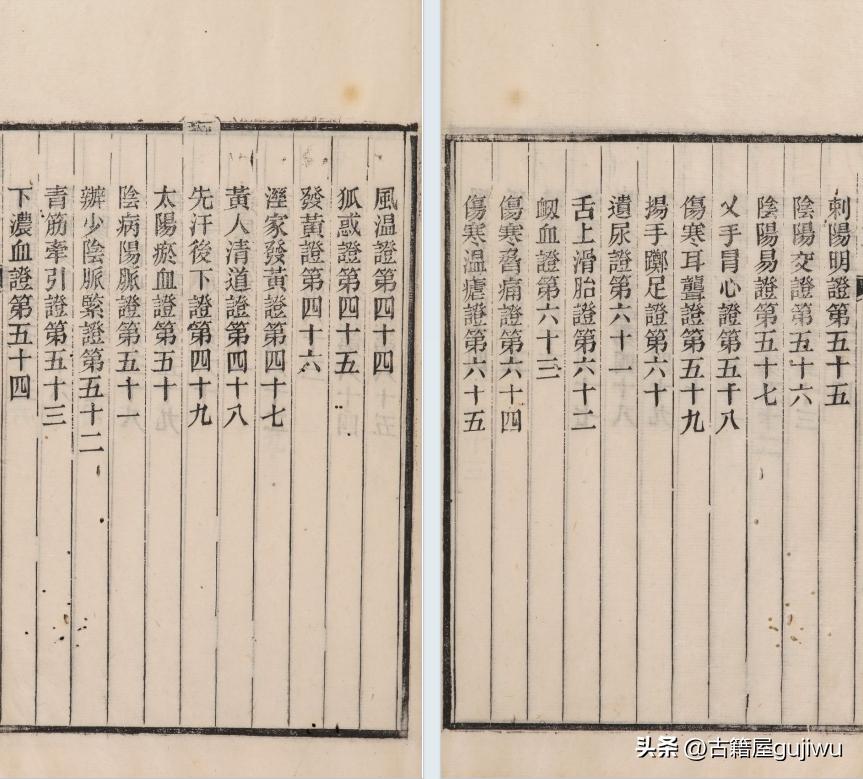 風温證第四十四
狐惑證第四十五
發黃證第四十六
溼家發黃證第四十七
黃人清道證第四十八
先汗後下證第四十九
太陽瘀血證第五十
陰病陽脈證第五十一
辨少陰脈緊證第五十二
青筋牽引證第五十三
下濃血證第五十四
刺陽明證第五十五
陰陽交證第五十六
陰陽易證第五十七
乂手冒心證第五十八
傷寒耳聾證第五十九
揚手躑足證第六十
遺尿證第六十一
舌上滑胎證第六十二
衂血證第六十三
傷寒脅痛證第六十四
傷寒温瘧證第六十五
头条 @古籍屋gujiwu